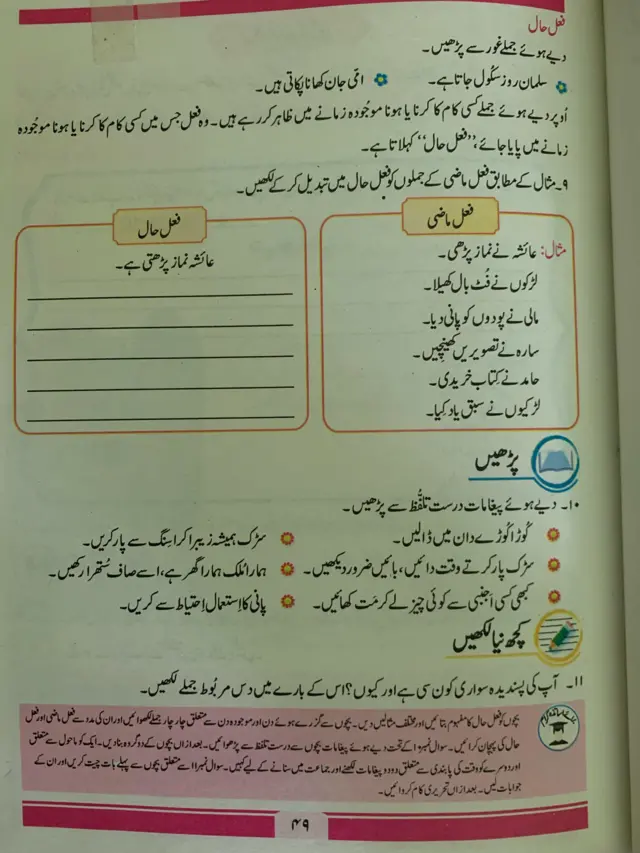 فعل حال
دیے ہوئے جملے غور سے پڑھیں۔
سلمان روز سکُول جاتا ہے۔ امّی جان کھانا پکاتی ہیں۔
اُوپر دیے ہوئے جملے کسی کام کا کرنا یا ہونا موجُودہ زمانے میں ظاہر کر رہے ہیں۔ وہ فعل جس میں کسی کام کا کرنا یا ہونا موجُودہ
زمانے میں پایا جائے، ”فعل حال“ کہلاتا ہے۔
۹۔ مثال کے مطابق فعل ماضی کے جملوں کو فعل حال میں تبدیل کر کے لکھیں۔
فعل ماضی
مثال: عائشہ نے نماز پڑھی۔
لڑکوں نے فُٹ بال کھیلا۔
مالی نے پودوں کو پانی دیا۔
سارہ نے تصویریں کھینچیں۔
حامد نے کِتاب خریدی۔
لڑکیوں نے سبق یاد کِیا۔
فعل حال
عائشہ نماز پڑھتی ہے۔
پڑھیں
۱۰۔ دیے ہوئے پیغامات درست تلفّظ سے پڑھیں۔
کُوڑا کُوڑے دان میں ڈالیں۔ سڑک ہمیشہ زیبرا کراسِنگ سے پار کریں۔
سڑک پار کرتے وقت دائیں، بائیں ضرور دیکھیں۔ ہمارا مُلک ہمارا گھر ہے، اسے صاف سُتھرا رکھیں۔
کبھی کسی اَجنبی سے کوئی چیز لے کر مَت کھائیں۔ پانی کا اِستعمال اِحتیاط سے کریں۔
کچھ نیا لکھیں
۱۱۔ آپ کی پسندیدہ سواری کون سی ہے اور کیوں؟ اس کے بارے میں دس مربُوط جملے لکھیں۔
بچّوں کو فعل حال کا مفہوم بتائیں اور مختلف مثالیں دیں۔ بچّوں سے گزرے ہوئے دن اور موجودہ دن سے متعلق چار چار جملے لکھوائیں اور ان کی مدد سے فعل ماضی اور فعل
حال کی پہچان کرائیں۔ سوال نمبر ۱۰ کے تحت دیے ہوئے پیغامات بچّوں سے درست تلفّظ سے پڑھوائیں۔ بعد ازاں بچّوں کے دو گروہ بنا دیں۔ ایک کو ماحول سے متعلق
اور دوسرے کو وقت کی پابندی سے متعلق دو دو پیغامات لکھنے اور جماعت میں سنانے کے لیے کہیں۔ سوال نمبر ۱۱ سے متعلق بچّوں سے پہلے بات چیت کریں اور ان کے
جوابات لیں۔ بعد ازاں تحریری کام کروائیں۔
۴۹